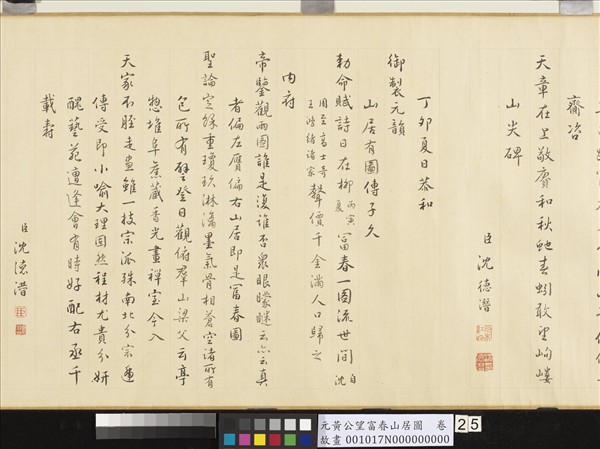 齋冶
天章在上敬賡和秋虵春蚓敢望岣嶁
山尖碑
臣沈德潛
丁卯夏日恭和
御製元韻
山居有圖傳子久
勅命賦詩日在柳丙寅夏富春一圖流世間自沈
周至高士奇王鴻緒諸家聲價千金滿人口歸之
内府
帝鑒觀兩圖誰是復誰否眾眼矇云亦云真
者偏左贗偏右山居即是富春圖
聖論定餘重瓊玖淋漓墨氣骨相蒼空諸所有
包所有登日觀俯群山梁父云亭
惣堆阜舊藏香光畫禪室今入
天家不脛走畫雖一枝宗派殊南北分宗遞
傳受即小喻大理固然程材尤貴分妍
醜藝苑遭逢會有時好配右丞千
載壽
臣沈德潛
元黃公望富春山居圖 卷
故畫 001017N000000000
25